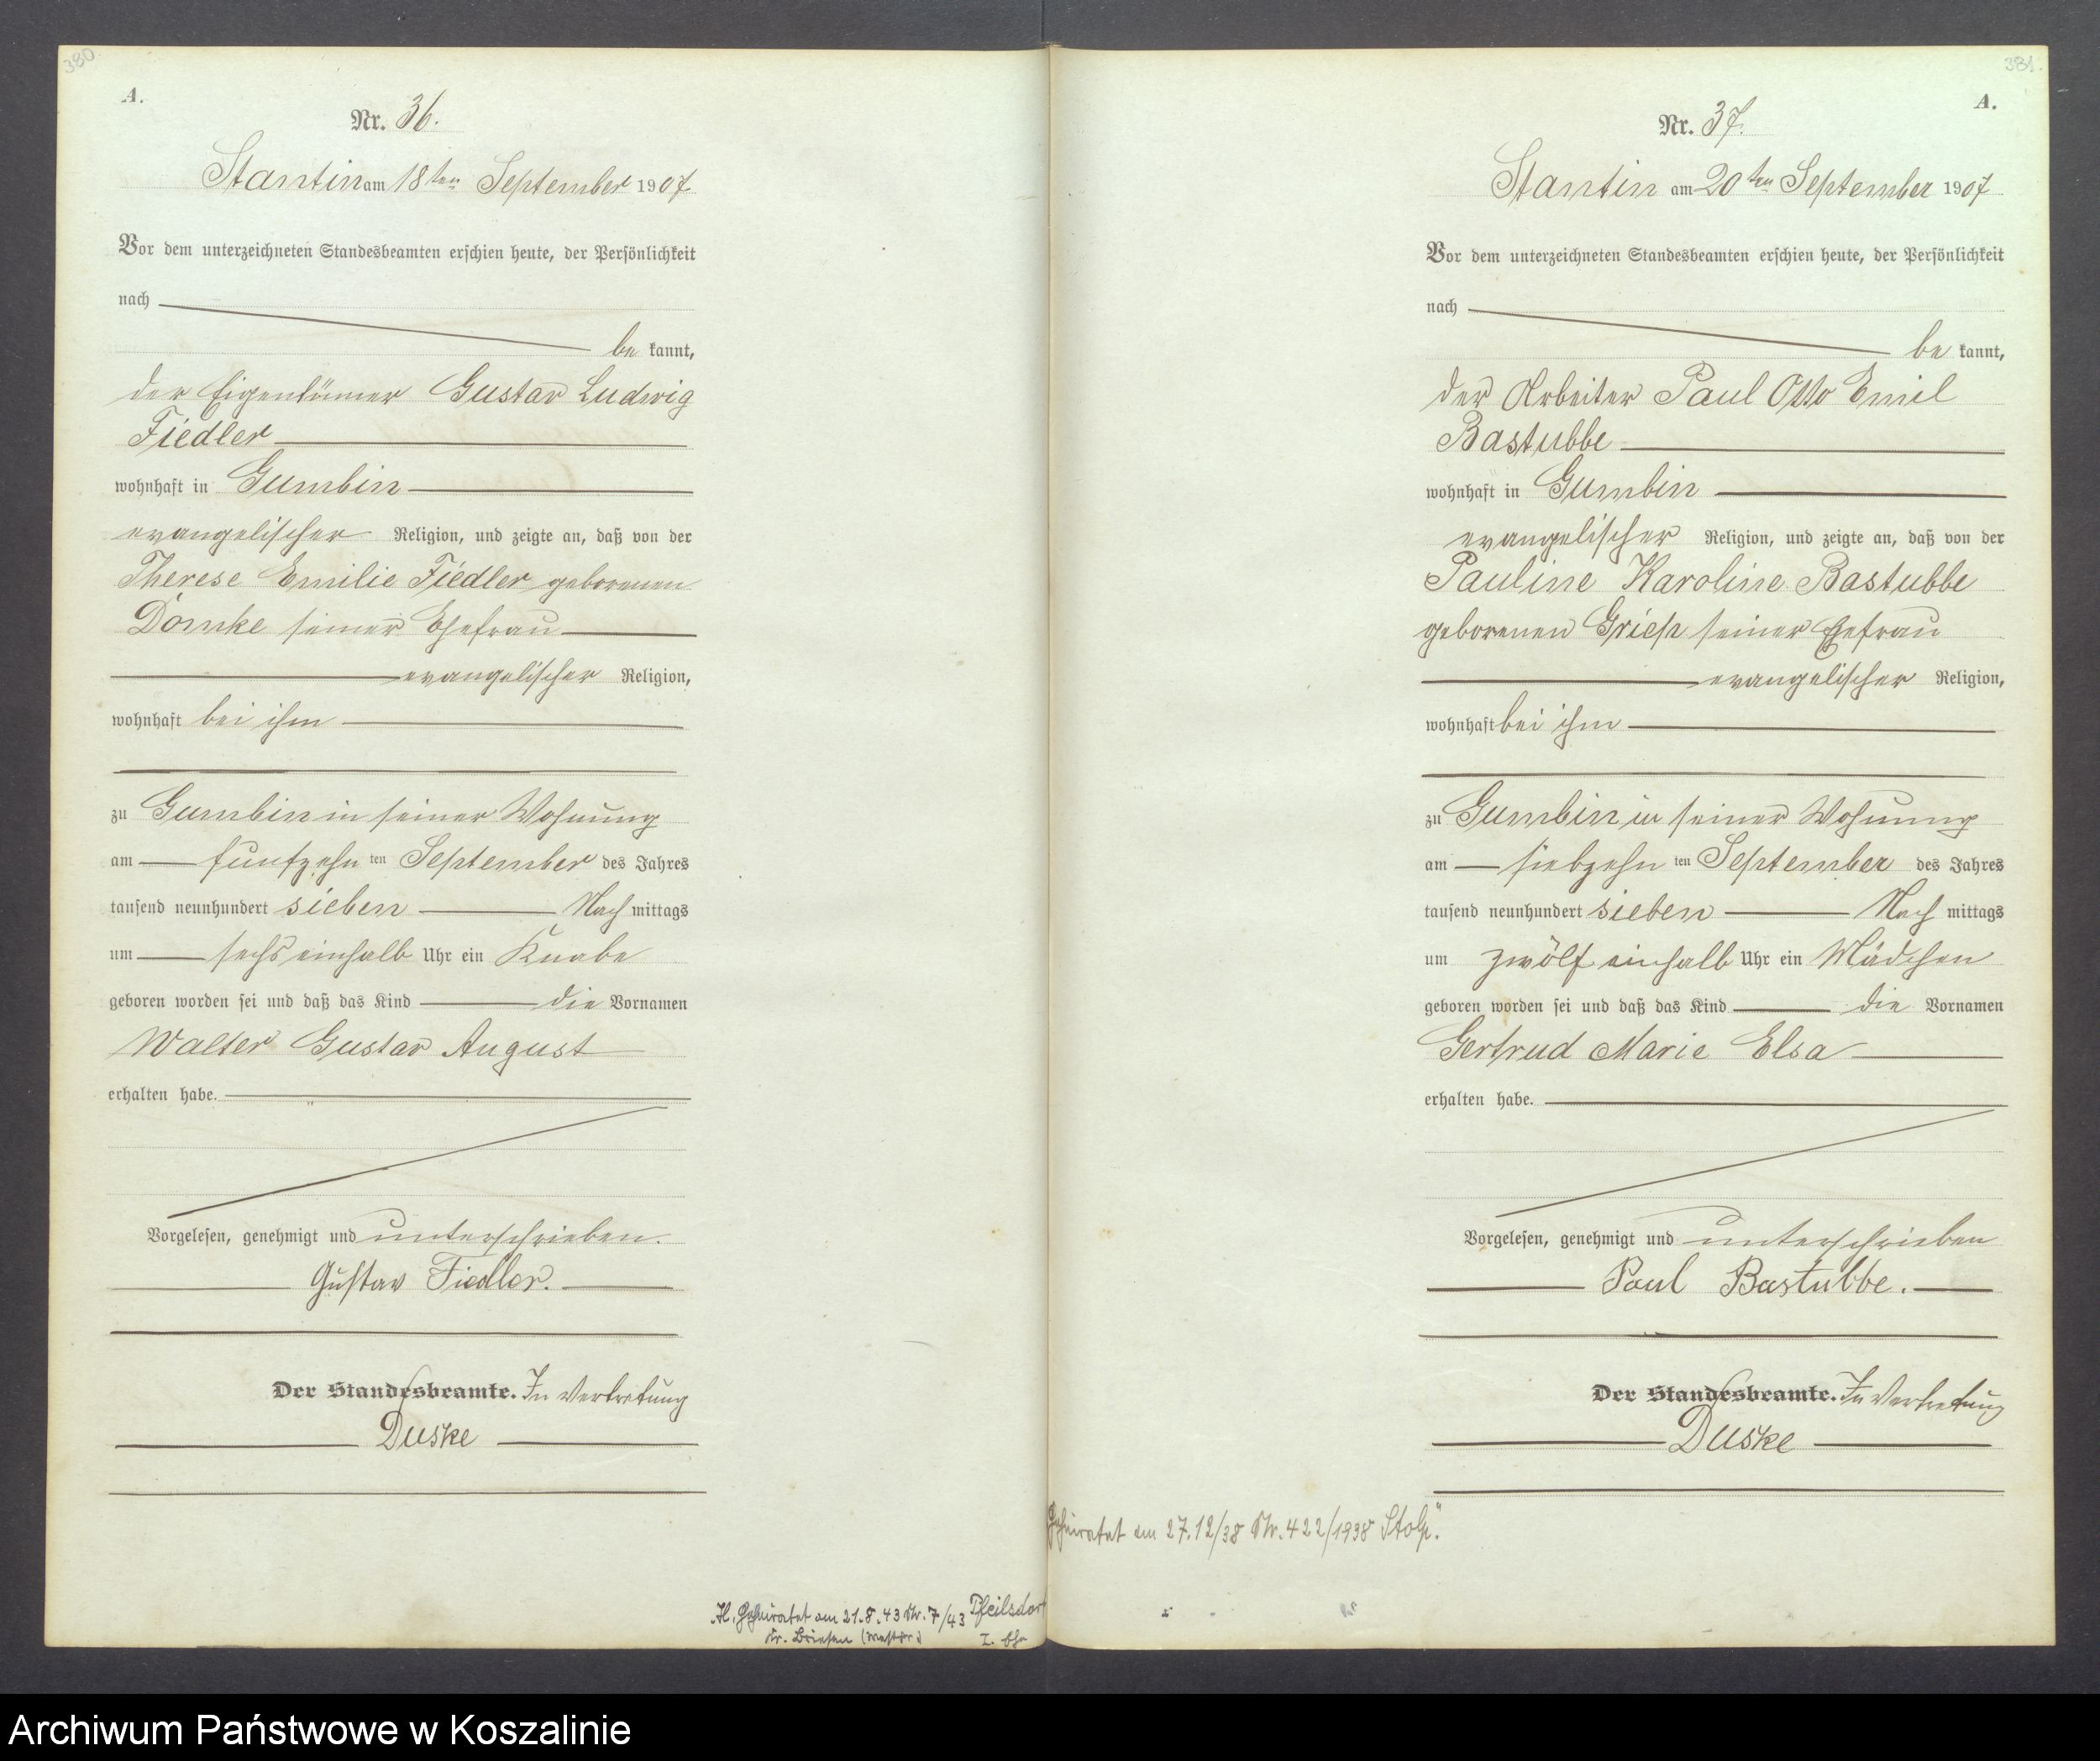 380
A.
Nr. 36.
Stantin am 18ten September 1907
Vor dem unterzeichneten Standesbeamten erschien heute, der Persönlichkeit
nach
be kannt,
der Eigentümer Gustav Ludwig
Fiedler
wohnhaft in Gumbin
evangelischer Religion, und zeigte an, daß von der
Therese Emilie Fiedler geborenen
Domke seiner Ehefrau
evangelischer Religion,
wohnhaft bei ihm
zu Gumbin in seiner Wohnung
am fünfzehn ten September des Jahres
tausend neunhundert sieben Nach mittags
um sechs einhalb Uhr ein Knabe
geboren worden sei und daß das Kind die Vornamen
Walter Gustav August
erhalten habe.
Vorgelesen, genehmigt und unterschrieben.
Gustav Fiedler.
Der Standesbeamte. In Vertretung
Duske
Geheiratet am 21.8.43 Nr. 7/43 Pfeilsdorf
Kr. Briesen (Westpr.) I. Ehe
381.
A.
Nr. 37.
Stantin am 20ten September 1907
Vor dem unterzeichneten Standesbeamten erschien heute, der Persönlichkeit
nach
be kannt,
der Arbeiter Paul Otto Emil
Bastubbe
wohnhaft in Gumbin
evangelischer Religion, und zeigte an, daß von der
Pauline Karoline Bastubbe
geborenen Griep seiner Ehefrau
evangelischer Religion,
wohnhaft bei ihm
zu Gumbin in seiner Wohnung
am siebzehn ten September des Jahres
tausend neunhundert sieben Nach mittags
um zwölf einhalb Uhr ein Mädchen
geboren worden sei und daß das Kind die Vornamen
Gertrud Marie Elsa
erhalten habe.
Vorgelesen, genehmigt und unterschrieben
Paul Bastubbe.
Der Standesbeamte. In Vertretung
Duske
Geheiratet am 27.12/38 Nr. 422/1938 Stolp."
Archiwum Państwowe w Koszalinie